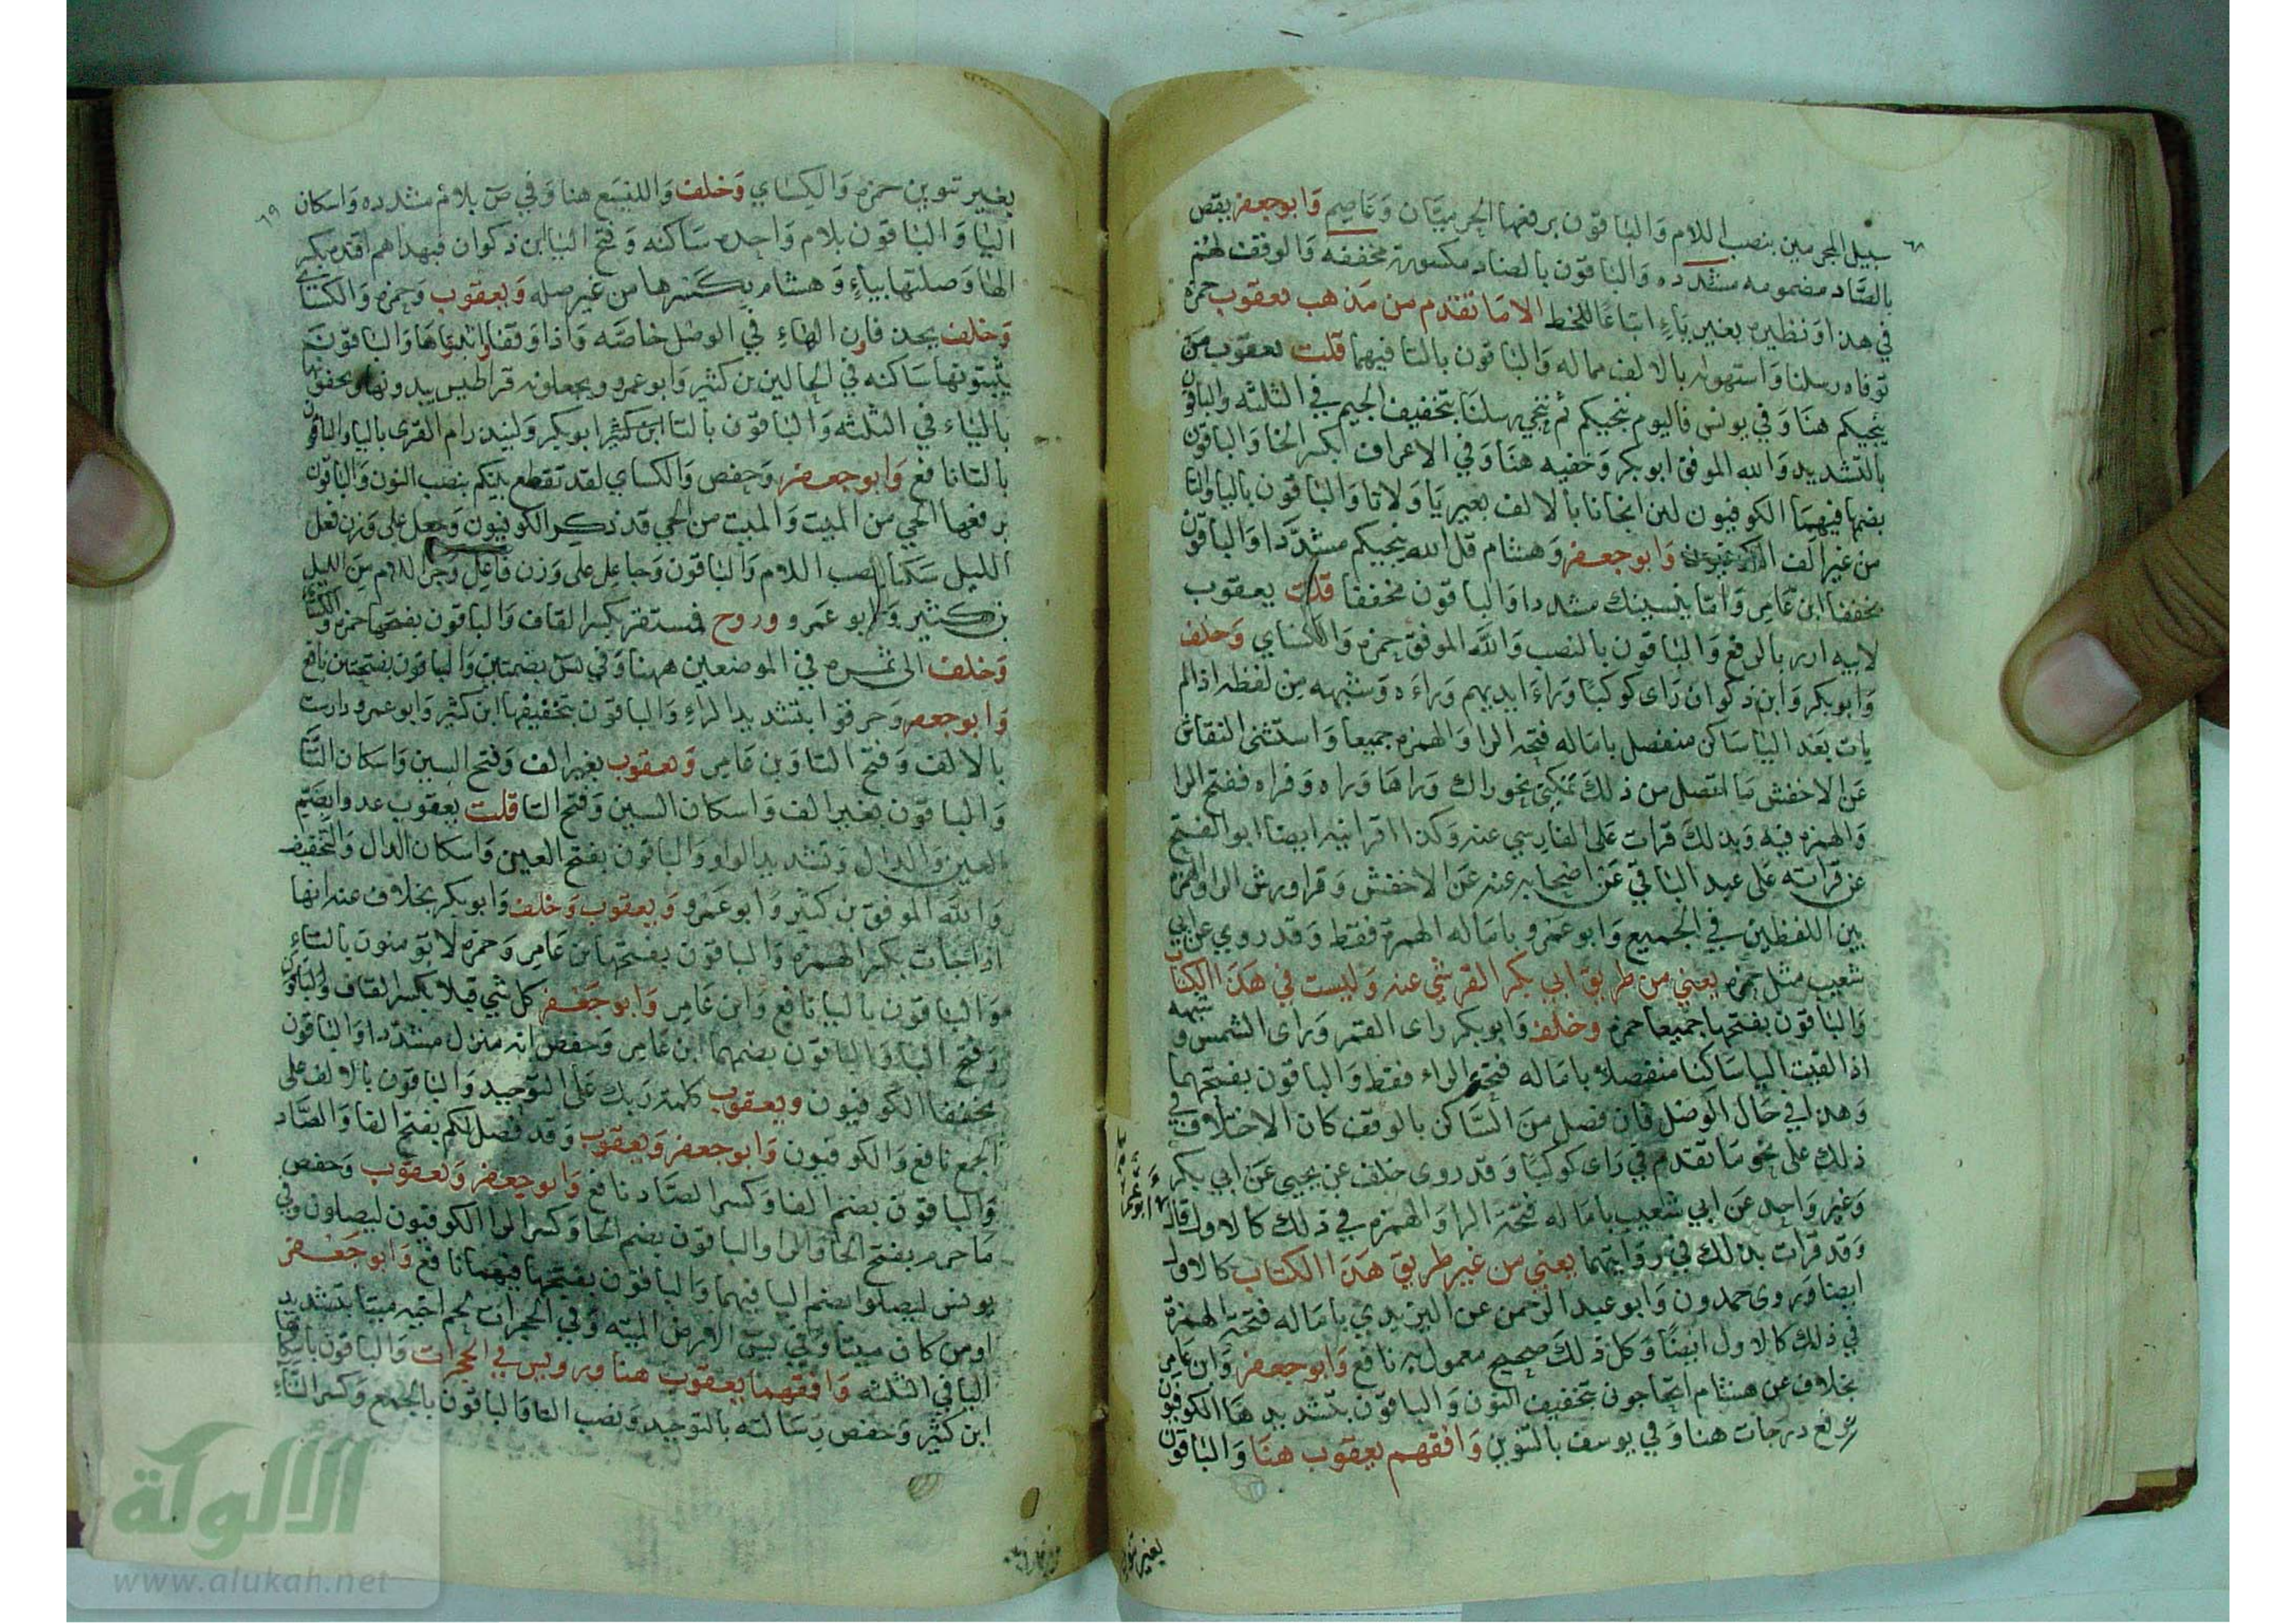 ٦٨
سبيل المجرمين بنصب اللام والباقون برفعها الحرميان وعاصم وابوجعفر يقص
بالصاد مضمومه مشدده والباقون بالضاد مكسورة مخففه والوقف لهم
في هذا ونظيره بغير ياء اتباعا للخط الا ما تقدم من مذهب يعقوب حمزه
توفاه رسلنا واستهواه بالالف مماله والباقون بالتا فيهما قلت يعقوب من
ينجيكم هنا وفي يونس فاليوم ننجيكم ثم ننجي رسلنا بتخفيف الجيم في الثلثه والباقون
بالتشديد والله الموفق ابوبكر وخفيه هنا وفي الاعراف بكسر الخا والباقون
بضمها فيهما الكوفيون لين انجانا بالالف بغير يا ولا تا والباقون باليا والتا
من غير الف الكوفيون وابوجعفر وهشام قل الله ينجيكم مشددا والباقون
مخففا ابن عامر واما ينسينك مشددا والباقون مخففا قلت يعقوب
لابيه ازر بالرفع والباقون بالنصب والله الموفق حمزه والكساي وخلف
وابوبكر وابن ذكوان راى كوكبا وراءا ايديهم وراءه وشبهه من لفظه اذا لم
يات بعد اليا ساكن منفصل باماله فتحه الرا والهمزه جميعا واستثنى النقاش
عن الاخفش ما اتصل من ذلك بمكني نحو راك وراها وراه وفراه ففتح الرا
والهمزه فيه وبذلك قرات على الفارسي عنه وكذا اقرانيه ايضا ابوالفتح
عن قراته على عبد الباقي عن اصحابه عنه عن الاخفش وقرا ورش الرا والهمزه
بين اللفظين في الجميع وابوعمرو باماله الهمزة فقط وقد روي عن ابي
شعيب مثل حمزه يعني من طريق ابي بكر القرشي عنه وليست في هذا الكتاب
والباقون بفتحها جميعا حمزه وخلف وابوبكر راى القمر وراى الشمس وشبهه
اذا لقيت اليا ساكنا منفصلا باماله فتحة الراء فقط والباقون بفتحهما
وهذا في حال الوصل فان فصل من الساكن بالوقف كان الاختلاف في
ذلك على نحو ما تقدم في راى كوكبا وقد روى خلف عن يحيى عن ابي بكر
وغير واحد عن ابي شعيب باماله فتحة الرا والهمزه في ذلك كالاول قال
وقد قرات بذلك في روايتهما يعني من غير طريق هذا الكتاب كالاول
ايضا وروى حمدون وابوعبد الرحمن عن اليزيدي باماله فتحة الهمزة
في ذلك كالاول ايضا وكل ذلك صحيح معمول به نافع وابوجعفر وابن عامر
بخلاف عن هشام اتحاجوني بتخفيف النون والباقون بتشديدها الكوفيون
نرفع درجات هنا وفي يوسف بالتنوين وافقهم يعقوب هنا والباقون
بغير تنوين
٦٩
بغير تنوين حمزه والكساي وخلف والليسع هنا وفي ص بلام مشدده واسكان
اليا والباقون بلام واحده ساكنه وفتح اليا ابن ذكوان فبهداهم اقتده بكسر
الها وصلتها بياء وهشام بكسرها من غير صله ويعقوب وحمزه والكساي
وخلف يحذفان الهاء في الوصل خاصه واذا وقفا اثبتاها والباقون
يثبتونها ساكنه في الحالين بن كثير وابوعمرو ويجعلونه قراطيس يبدونها ويخفون
بالياء في الثلثه والباقون بالتا ابوبكر ولينذر ام القرى باليا والباقون
بالتا نافع وابوجعفر وحفص والكساي لقد تقطع بينكم بنصب النون والباقون
برفعها الحي من الميت والميت من الحي قد ذكر الكوفيون وجعل على وزن فعل
الليل سكنا بنصب اللام والباقون وجاعل على وزن فاعل وجر اللام من الليل
بن كثير وابوعمرو وروح فمستقر بكسر القاف والباقون بفتحها حمزه والكساي
وخلف الى ثمره في الموضعين ههنا وفي يس بضمتين والباقون بفتحتين نافع
وابوجعفر وخرقوا بتشديد الراء والباقون بتخفيفها ابن كثير وابوعمرو دارست
بالالف وفتح التا وبن عامر ويعقوب بغير الف وفتح السين واسكان التا
والباقون بغير الف واسكان السين وفتح التا قلت يعقوب عدوا بضم
العين والدال وتشديد الواو والباقون بفتح العين واسكان الدال والتخفيف
والله الموفق بن كثير وابوعمرو ويعقوب وخلف وابوبكر بخلاف عنه انها
اذا جات بكسر الهمزه والباقون بفتحها بن عامر وحمزه لا تومنون بالتاء
والباقون باليا نافع وابن عامر وابوجعفر كل شي قبلا بكسر القاف
وفتح البا والباقون بضمهما ابن عامر وحفص انه منزل مشددا والباقون
مخففا الكوفيون ويعقوب كلمة ربك على التوحيد والباقون بالالف على
الجمع نافع والكوفيون وابوجعفر ويعقوب وقد فصل لكم بفتح الفا والصاد
والباقون بضم الفا وكسر الصاد نافع وابوجعفر ويعقوب وحفص
ما حرم بفتح الحا والرا والباقون بضم الحا وكسر الرا الكوفيون ليضلون وفي
يونس ليضلوا بضم اليا فيهما والباقون بفتحها فيهما نافع وابوجعفر
اومن كان ميتا وفي يس الارض الميته وفي الحجرات لحم اخيه ميتا بتشديد
اليا في الثلثه وافقهما يعقوب هنا ورويس في الحجرات والباقون باسكانها
ابن كثير وحفص رسالته بالتوحيد ونصب التا والباقون بالجمع وكسر التاء
الألوكة
www.alukah.net